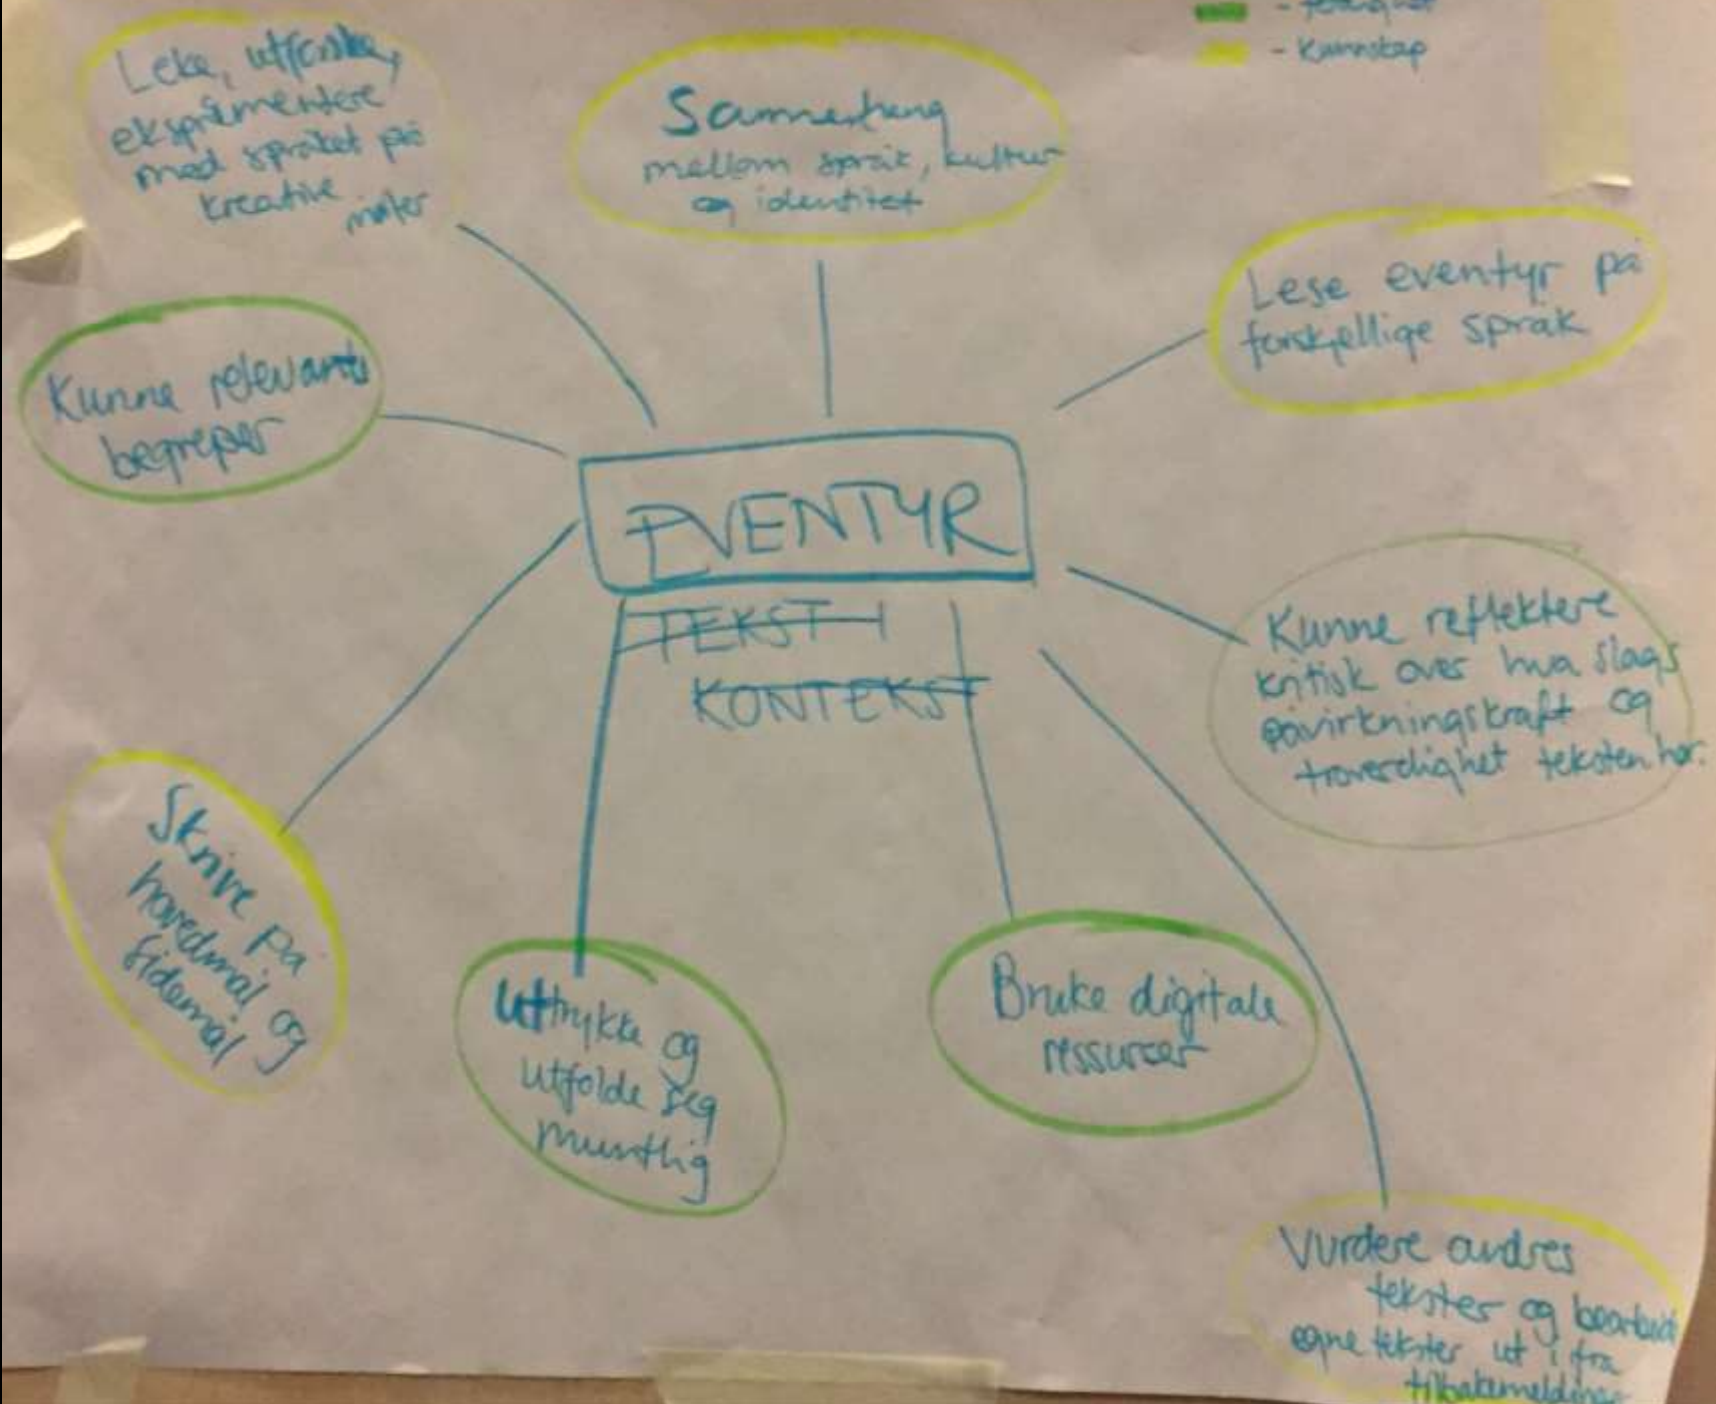 - Kunnskap
Leke, utforske,
eksprimentere
med språket på
kreative
måter
Sammenheng
mellom språk, kultur
og identitet
Lese eventyr på
forskjellige språk
Kunne relevante
begreper
EVENTYR
TEKST I
KONTEKST
Kunne reflektere
kritisk over hva slags
påvirkningskraft og
troverdighet teksten har.
Skrive på
hovedmål og
sidemål
Uttrykke og
utfolde seg
muntlig
Bruke digitale
ressurser
Vurdere andres
tekster og
egne tekster ut i fra